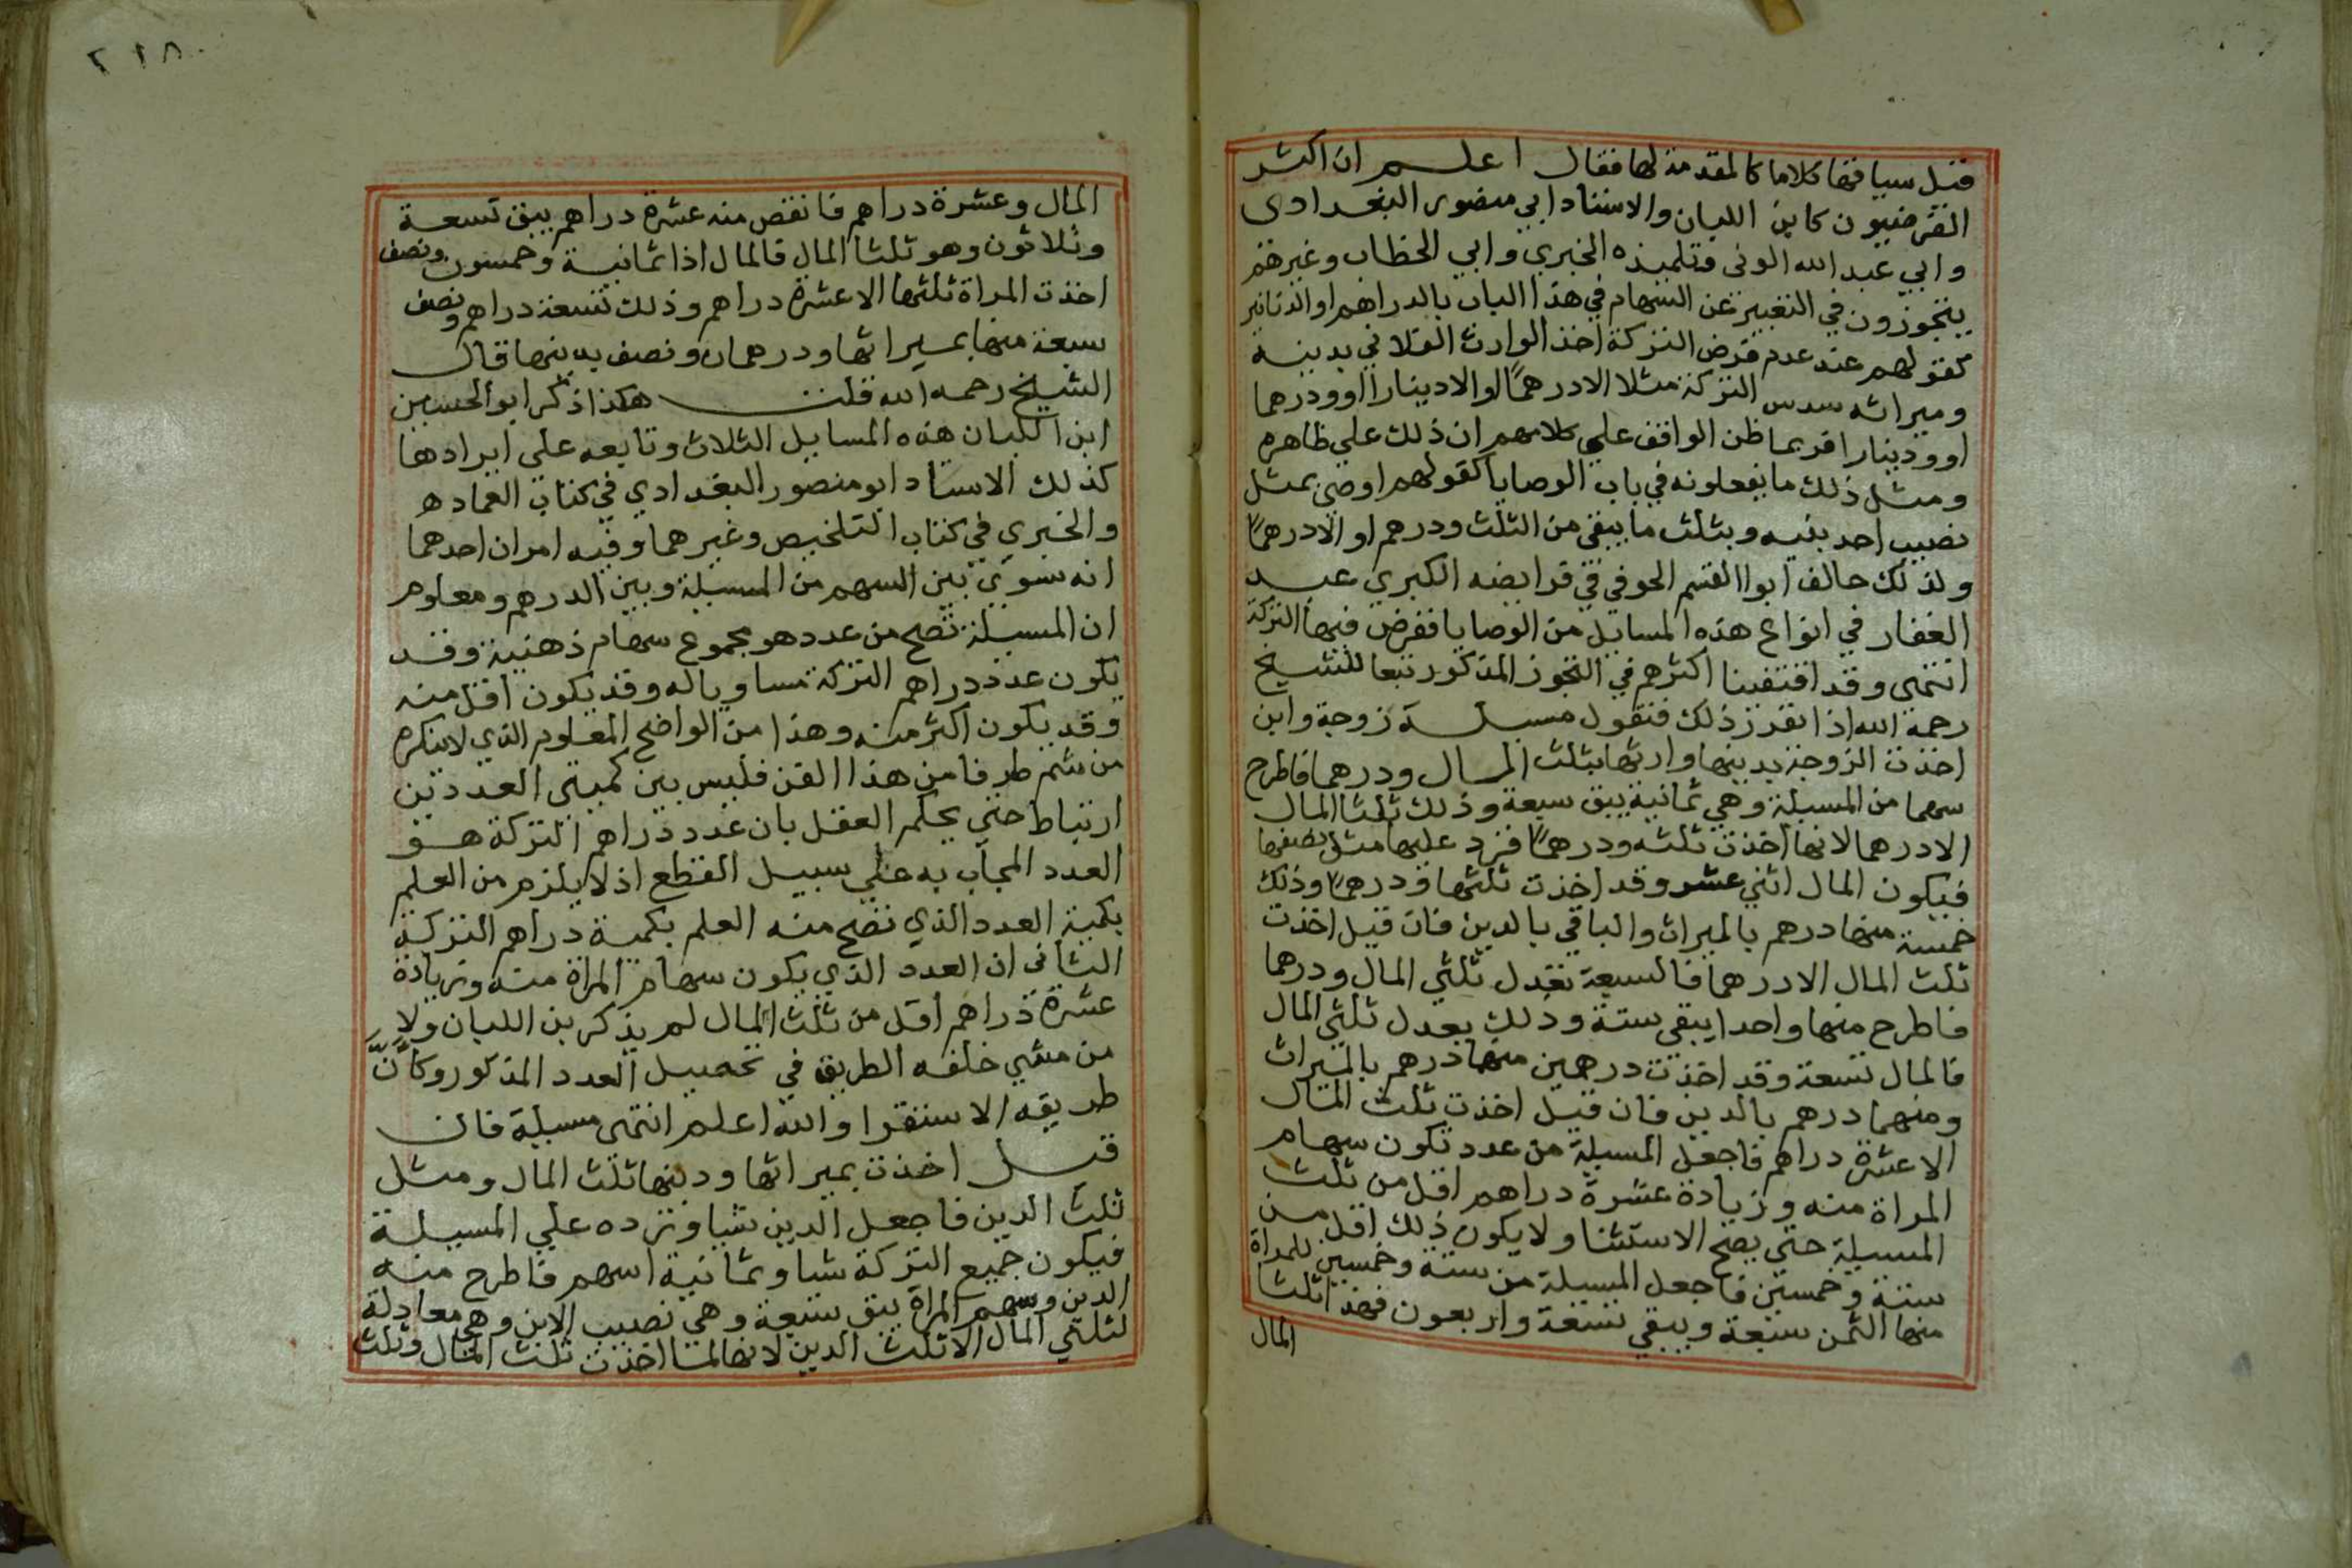 قبل سياقتها كلاما كالمقدمة لها فقال اعلم ان اكثر
الفرضيون كابن اللبان والاستاد ابي منصور البغدادى
وابي عبد الله الونى وتلميذه الخبري وابي الخطاب وغيرهم
يتجوزون في التعبير عن السهام في هذا الباب بالدراهم او الدنانير
كقولهم عند عدم فرض التركة اخذ الوارث الفلاني بدينه
وميراثه سدس التركة مثلا الا درهما او الا دينارا او ودرهما
او ودينارا فربما ظن الواقف علي كلامهم ان ذلك علي ظاهره
ومثل ذلك ما يفعلونه في باب الوصايا كقولهم اوصي بمثل
نصيب احد بنيه وبثلث ما يبقي من الثلث ودرهم او الا درهما
ولذلك خالف ابوا القسم الحوفي في فرايضه الكبري عبد
الغفار في انواع هذه المسايل من الوصايا ففرض فيها التركة
انتهى وقد اقتفينا اكثرهم في التجوز المذكور تبعا للشيخ
رحمة الله اذا تقرر ذلك فنقول مسيلة زوجة وابن
اخذت الزوجة بدينها وارثها بثلث المال ودرهما فاطرح
سهما من المسيلة وهي ثمانية يبق سبعة وذلك ثلثا المال
الا درهما لانها اخذت ثلثه ودرهما فزد عليها مثل نصفها
فيكون المال اثني عشر وقد اخذت ثلثها ودرهما وذلك
خمسة منها درهم بالميراث والباقي بالدين فان قيل اخذت
ثلث المال الا درهما فالسبعة تعدل ثلثي المال ودرهما
فاطرح منها واحدا يبقي ستة وذلك يعدل ثلثي المال
فالمال تسعة وقد اخذت درهمين منهما درهم بالميراث
ومنهما درهم بالدين فان قيل اخذت ثلث المال
الا عشرة دراهم فاجعل المسيلة من عدد تكون سهام
المراة منه وزيادة عشرة دراهم اقل من ثلث
المسيلة حتي يصح الاستثنا ولا يكون ذلك اقل من
ستة وخمسين فاجعل المسيلة من ستة وخمسين للمراة
منها الثمن سبعة ويبقي تسعة واربعون فهذا ثلثا
المال
٢١٨
المال وعشرة دراهم فانقص منه عشرة دراهم يبق تسعة
وثلاثون وهو ثلثا المال فالمال اذا ثمانية وخمسون ونصف
اخذت المراة ثلثها الا عشرة دراهم وذلك تسعة دراهم ونصف
سبعة منها بميراثها ودرهمان ونصف بدينها قال
الشيخ رحمه الله قلت هكذا ذكر ابو الحسين
ابن اللبان هذه المسايل الثلاث وتابعه علي ايرادها
كذلك الاستاد ابو منصور البغدادي في كتاب العماده
والخبري في كتاب التلخيص وغيرهما وفيه امران احدهما
انه سوي بين السهم من المسيلة وبين الدرهم ومعلوم
ان المسيلة تصح من عدد هو مجموع سهام ذهنية وقد
يكون عدد دراهم التركة مساويا له وقد يكون اقل منه
وقد يكون اكثر منه وهذا من الواضح المعلوم الذي لا ينكره
من شم طرفا من هذا الفن فليس بين كميتى العددين
ارتباط حتي يحكم العقل بان عدد دراهم التركة هو
العدد المجاب به علي سبيل القطع اذ لا يلزم من العلم
بكمية العدد الذي تصح منه العلم بكمية دراهم التركة
الثاني ان العدد الذي يكون سهام المراة منه وزيادة
عشرة دراهم اقل من ثلث المال لم يذكر بن اللبان ولا
من مشي خلفه الطريق في تحصيل العدد المذكور وكانّ
طريقه الاستقرا والله اعلم انتهى مسيلة فان
قيل اخذت بميراثها ودينها ثلث المال ومثل
ثلث الدين فاجعل الدين شيا وزده علي المسيلة
فيكون جميع التركة شيا وثمانية اسهم فاطرح منه
الدين وسهم المراة يبق سبعة وهي نصيب الابن وهي معادلة
لثلثي المال الا ثلث الدين لانها لما اخذت ثلث المال وثلث